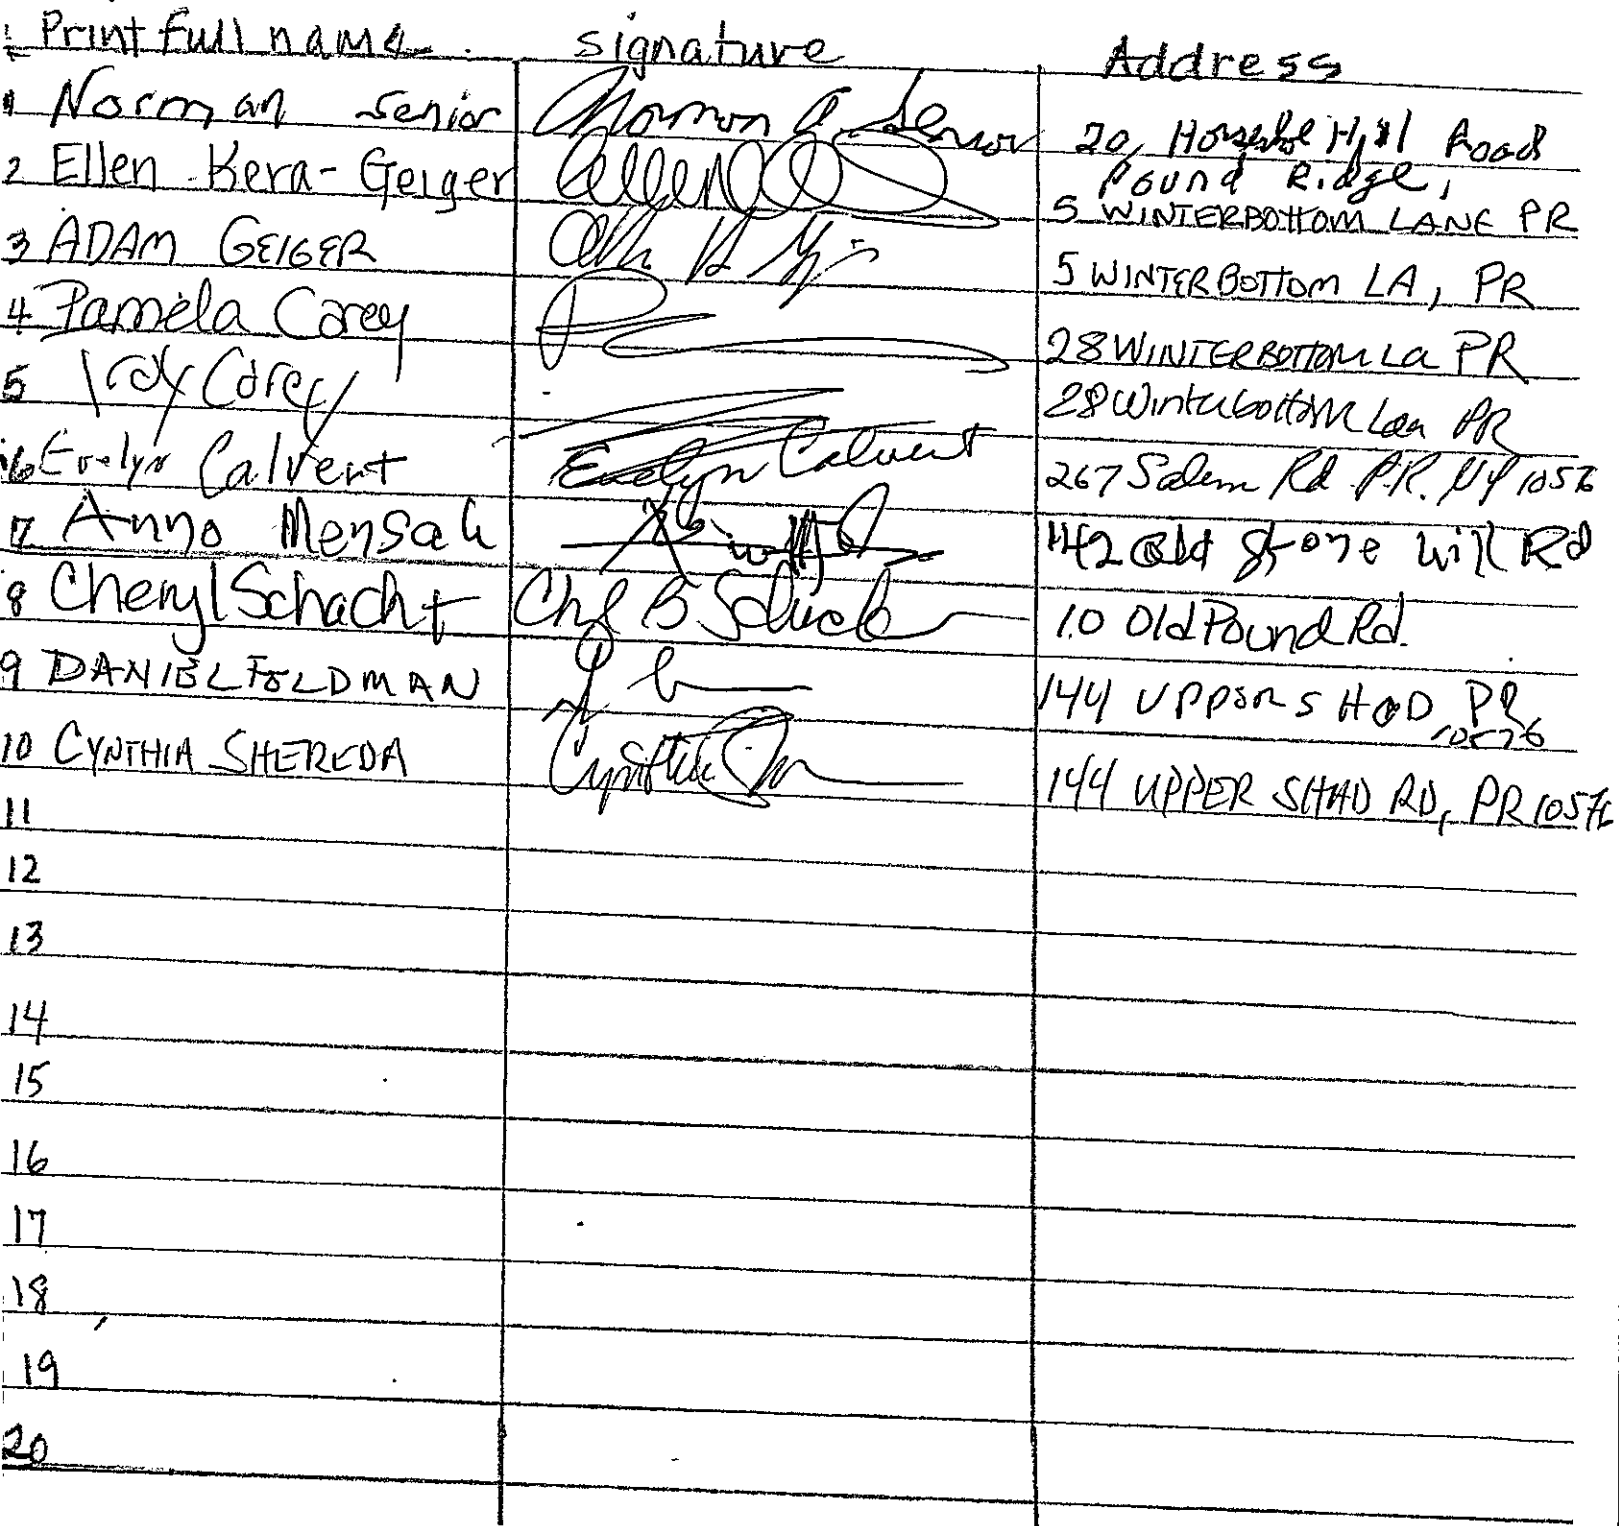 Print full name signature Address
1 Norman Senior Norman A. Senior 20 Horseshoe Hill Road
Pound Ridge,
2 Ellen Kera-Geiger Ellen 5 WINTERBOTTOM LANE PR
3 ADAM GEIGER 5 WINTERBOTTOM LA, PR
4 Pamela Corey 28 WINTERBOTTOM La PR
5 Corey 28 Winterbottom PR
6 Evelyn Calvent Evelyn Calvent 267 Salem Rd P.R. NY
7 Anno Mensah 142 Old Stone Hill Rd
8 Cheryl Schacht 10 Old Pound Rd.
9 DANIEL FELDMAN 144 UPPER SHAD PR
10576
10 CYNTHIA SHEREDA Cynthia 144 UPPER SHAD RD, PR 10576
11
12
13
14
15
16
17
18
19
20